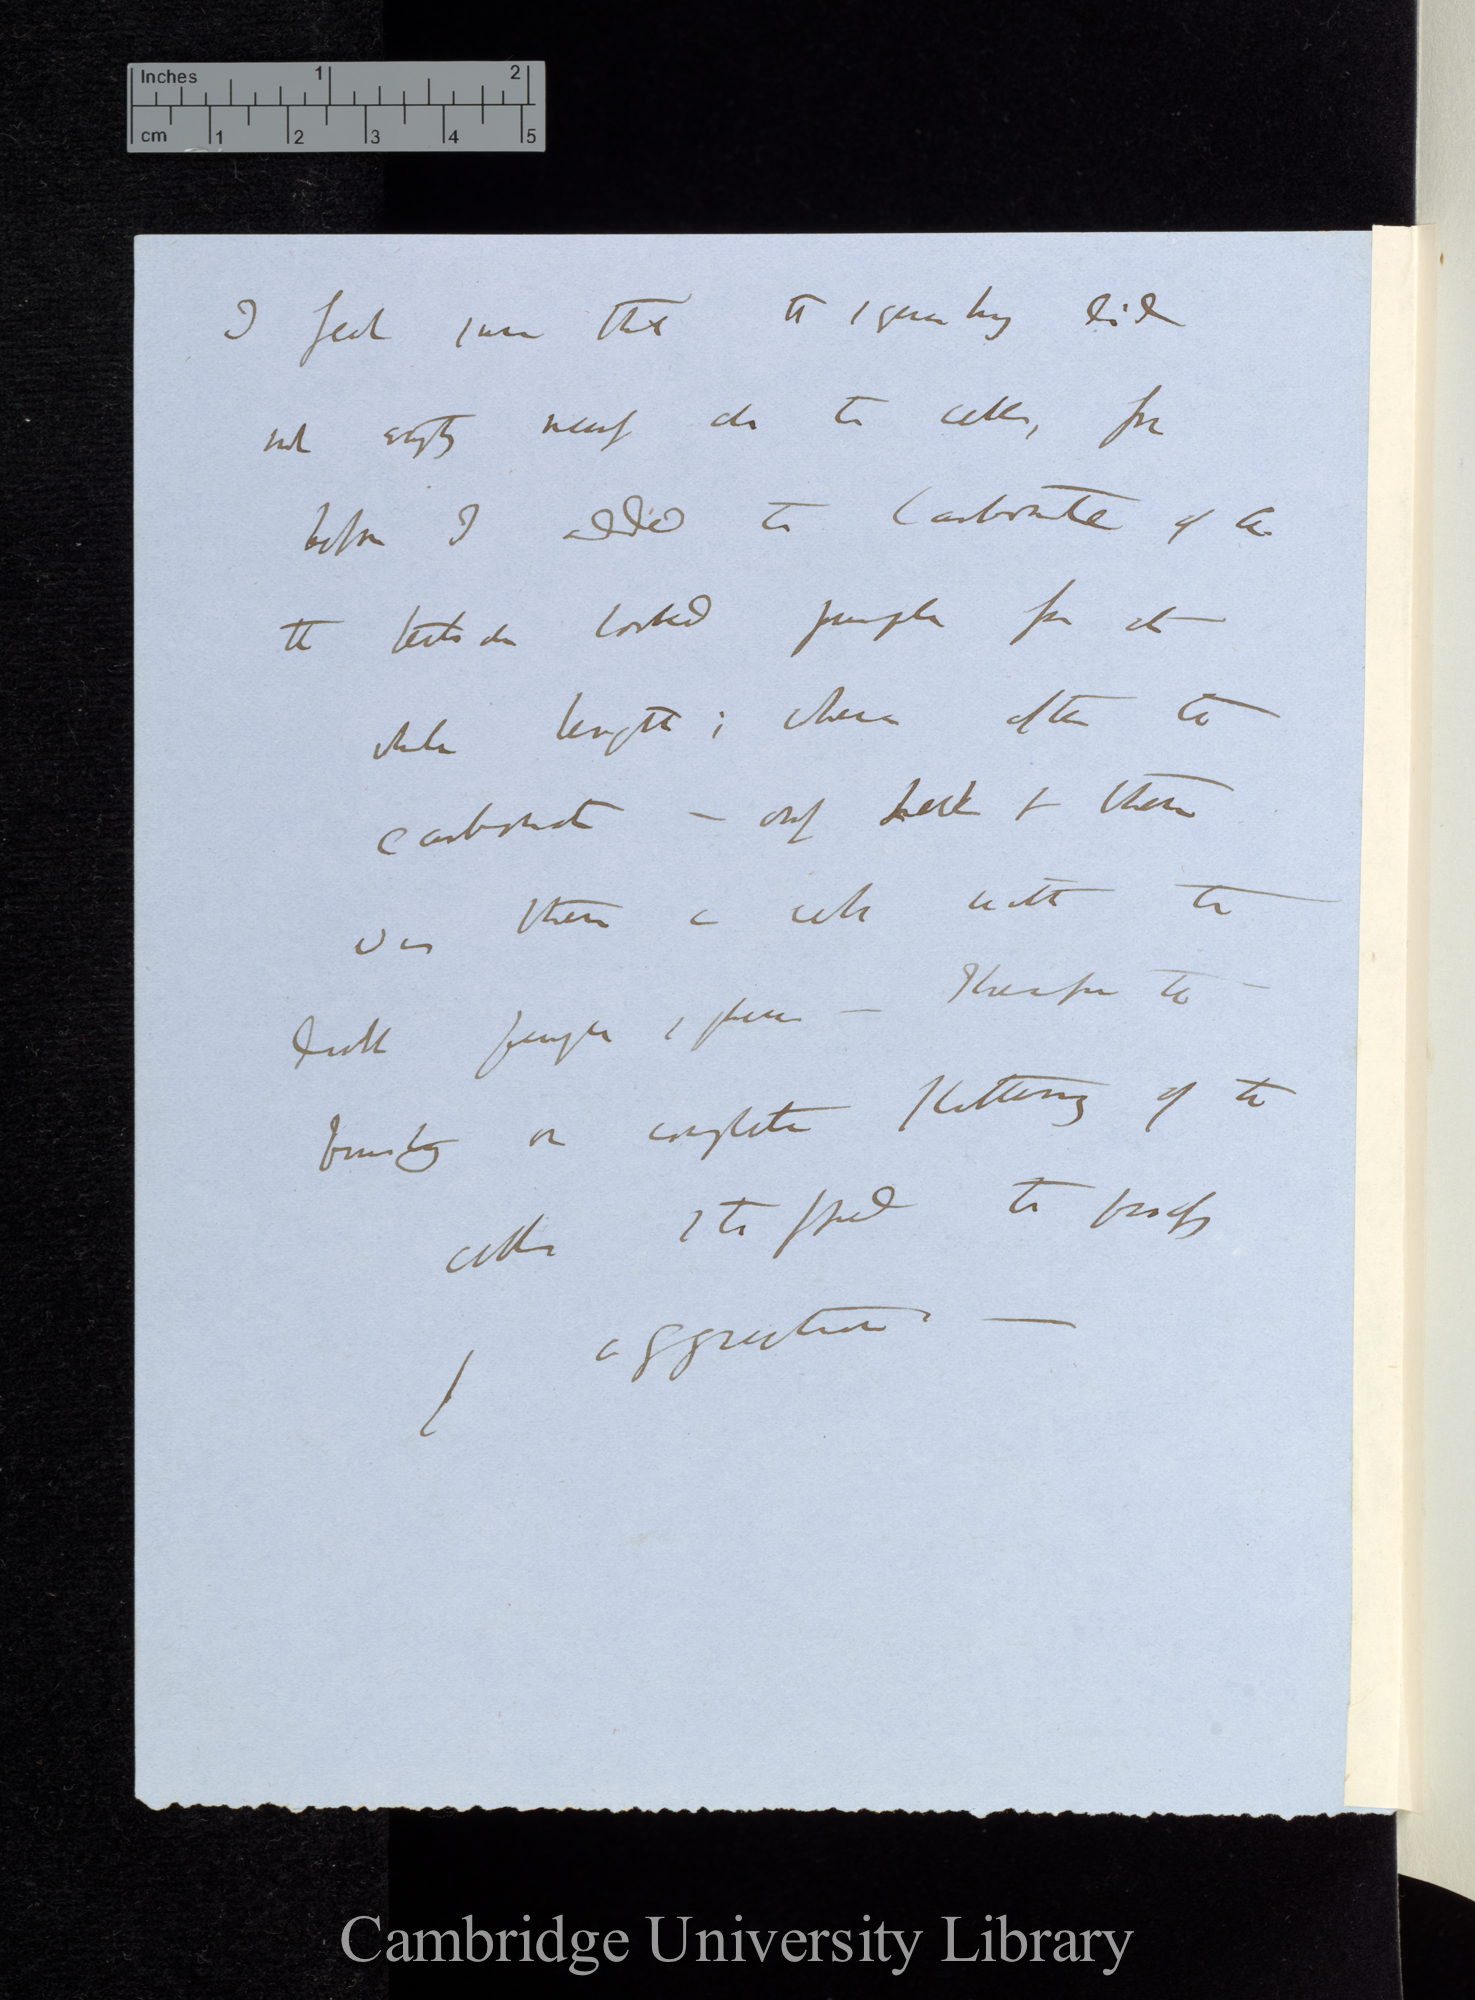 Inches 1 2
cm 1 2 3 4 5
I feel sure that the squeezing did
not empty nearly all the cells, for
before I added the Carbonate of a
the tentacles looked purple for its
whole length; whereas after the
carbonate – only here & there
was there a cell with the
little purple spheres — Therefore the
bursting or complete flattening of the
cells stopped the process
of aggregation —
Cambridge University Library